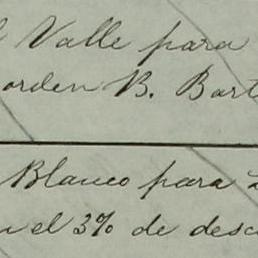 Valle para
orden B. Bart
Blanco para
el 3% de desc